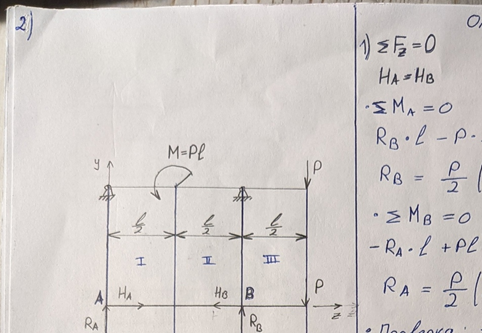 2)
M=Pl
y
P
l/2 l/2 l/2
I II III
A HA HB B P
z
RA RB
1) ΣFz=0
HA=HB
·ΣMA=0
RB·l-P·
RB=P/2(
·ΣMB=0
-RA·l+Pl
RA=P/2(